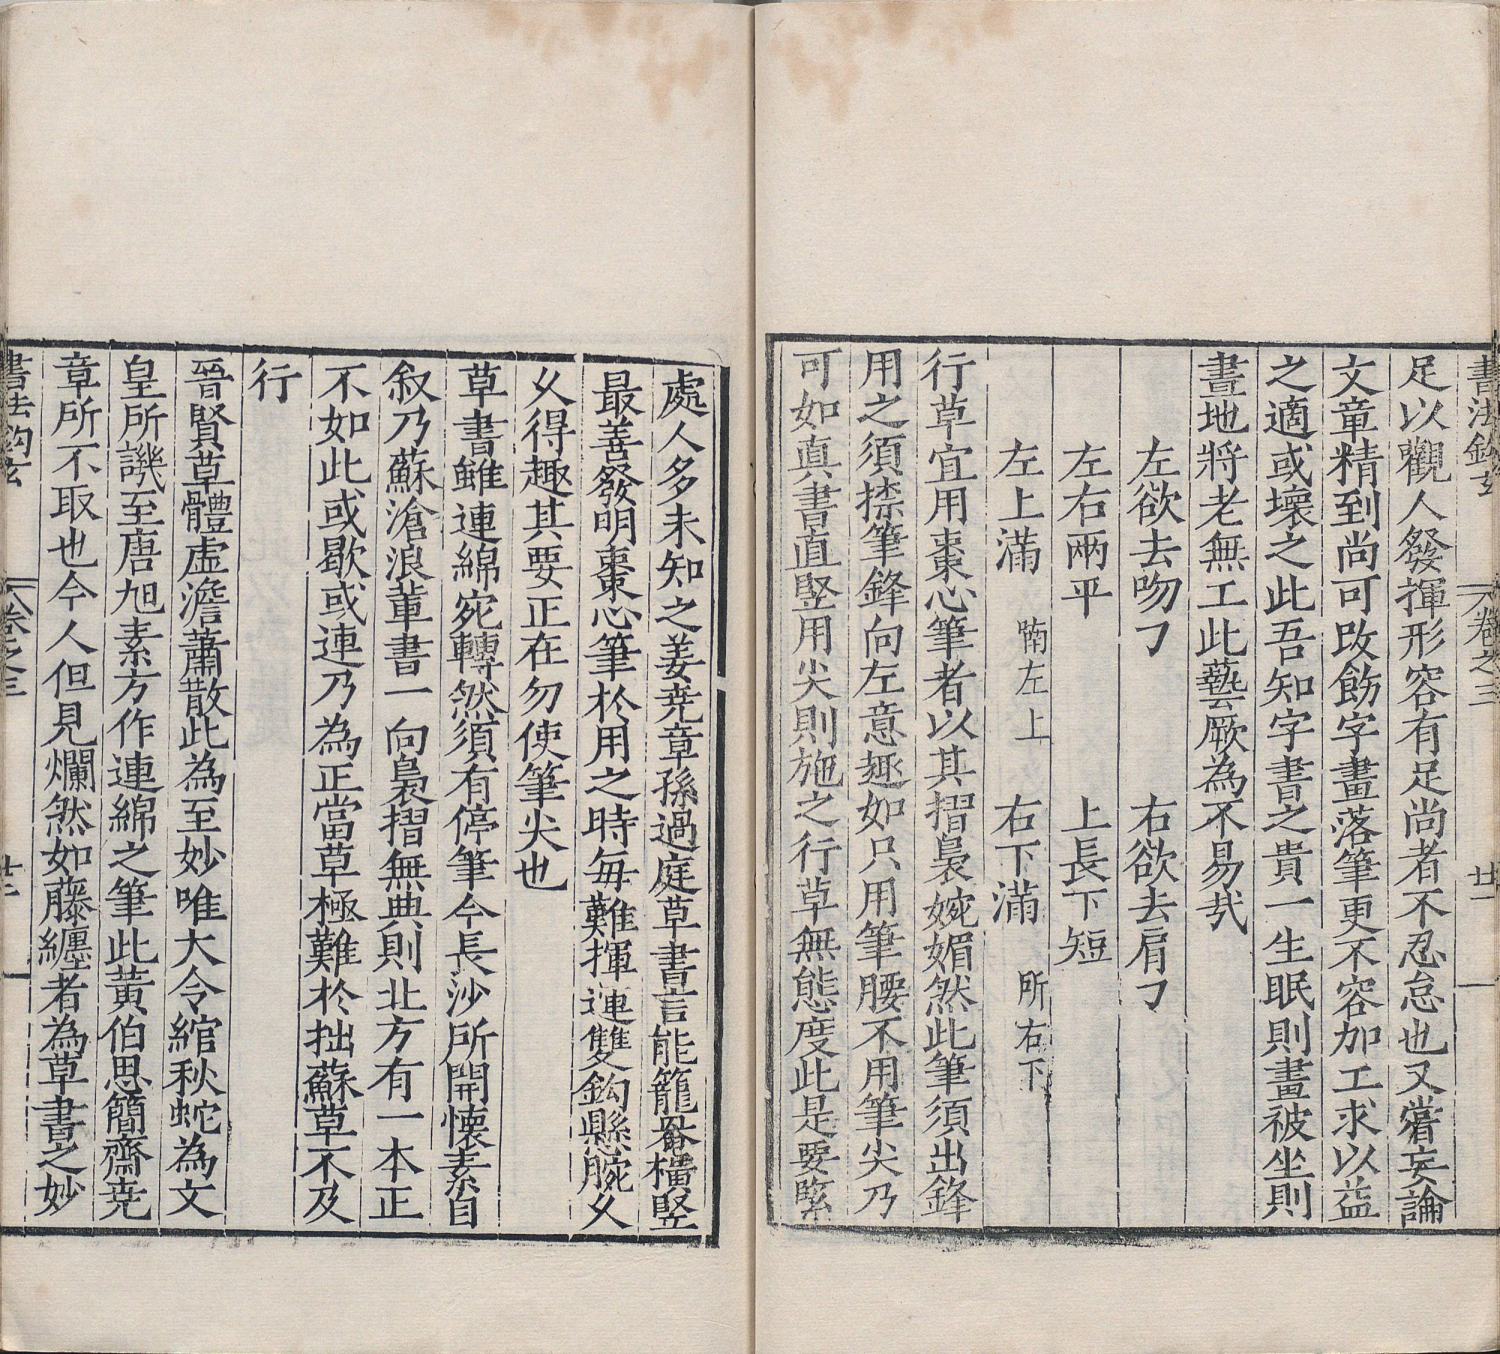 書法鈎玄 卷之三 廿一
足以觀人發揮形容有足尚者不忍怠也又嘗妄論
文章精到尚可改飭字畫落筆更不容加工求以益
之適或壞之此吾知字書之貴一生眠則畫被坐則
畫地將老無工此藝厥為不易哉
左欲去吻㇆ 右欲去肩㇆
左右兩平 上長下短
左上滿 喃左上 右下滿 所右下
行草宜用棗心筆者以其摺裊婉媚然此筆須出鋒
用之須捺筆鋒向左意趣如只用筆腰不用筆尖乃
可如真書直竪用尖則施之行草無態度此是要緊
處人多未知之姜堯章孫過庭草書言能籠菴橫竪
最善發明棗心筆於用之時毎難揮連雙鈎懸腕久
久得趣其要正在勿使筆尖也
草書雖連綿宛轉然須有停筆今長沙所開懷素自
叙乃蘇滄浪輩書一向裊摺無典則北方有一本正
不如此或歇或連乃為正當草極難於拙蘇草不及
行
晉賢草體虛澹蕭散此為至妙唯大令綰秋蛇為文
皇所譏至唐旭素方作連綿之筆此黃伯思簡齋堯
章所不取也今人但見爛然如藤纏者為草書之妙
書法鈎玄 卷之三 廿二